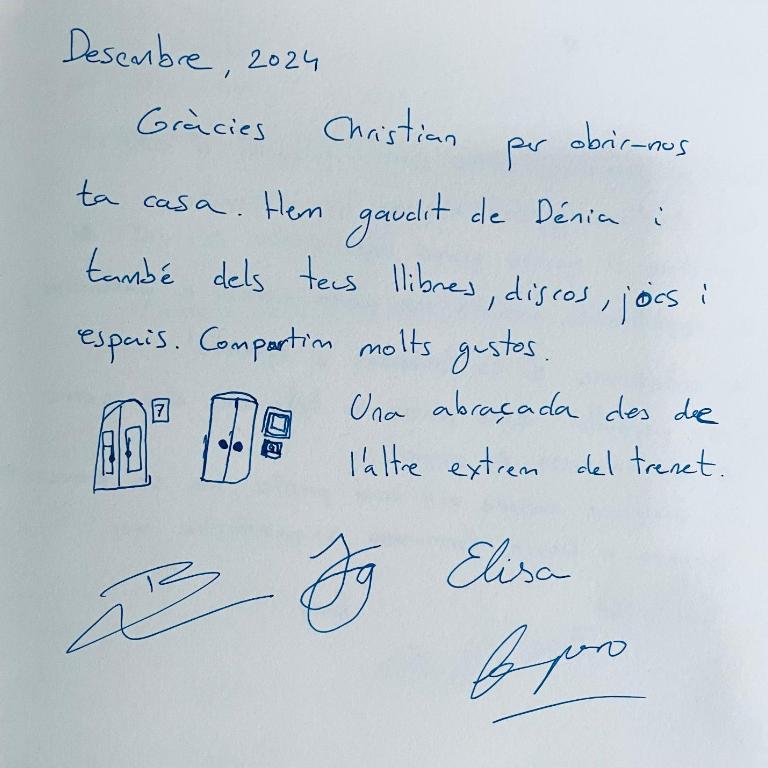 Desembre, 2024
Gràcies Christian per obrir-nos
ta casa. Hem gaudit de Dénia i
també dels teus llibres, discos, jocs i
espais. Compartim molts gustos.
7
Una abraçada des de
l'altre extrem del trenet.
Elisa